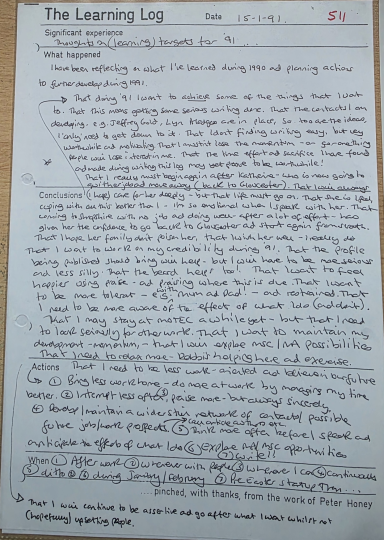 The Learning Log Date 15-1-91. 511
Significant experience
Thoughts on (learning) targets for 91 ...
What happened
I have been reflecting on what I've learned during 1990 and planning actions
to further develop during 1991.
That during 91 I want to achieve some of the things that I want
to. That this means getting some serious writing done. That the contacts I am
developing e.g. Jeffrey Gold, Lyn are in place, so too are the ideas,
I only need to get down to it. That I don't find writing easy, but very
worthwhile and motivating. That I must not lose the momentum - or
people will lose interest in me. That the effort and sacrifice I have
made during writing this log may yet prove to be worthwhile!
That I really must begin again after Katherine - who is now going to
move away (back to Gloucester). That I will always
Conclusions (I hope) care for her deeply - but that life must go on. That she is, I feel,
coping with this better than I - I'm so emotional when I speak with her. That
coming to Shropshire with no job and doing well - after a lot of effort - has
given her the confidence to go back to Gloucester and start again
That I hope her family don't her, that I wish her well - I really do
That I want to work on my credibility during 91. That the profile
being published should bring help - but I will have to be more serious
and less silly. That the beard helps too! That I want to feel
happier using praise - and raising where this is due. That I want
to be more tolerant - e.g. with Mum and Dad! - and restrained. That
I need to be more aware of the effect of what I do (and don't).
That I may stay at MOTEC a while yet - but that I need
to look seriously for other work. That I want to maintain my
development momentum, - that I will explore MSc/MA possibilities
That I need to relax more - Rabbit helping here and exercise.
Actions That I need to be less work and believe in our future
① Bring less work home - do more at work by managing my time
better. ② Interrupt less often, ③ praise more - but always sincerely,
④ Develop/maintain a wider network of contacts/possible
future job/work prospects. ⑤ Think more often before I speak and
anticipate the effect of what I do ⑥ explore MSc opportunities
⑦ write!!
When ① After work ② wherever with people ③ wherever I can ④ continuous
⑤ ditto ⑥ during January/February ⑦ Pre Easter start
...pinched, with thanks, from the work of Peter Honey
That I will continue to be assertive and go after what I want whilst not
(hopefully) upsetting people.